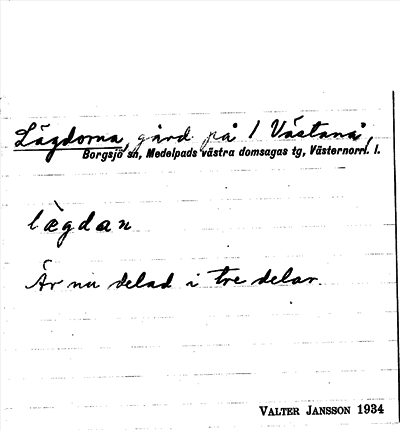 Lägdorna, gård på 1 Västanå,
Borgsjö sn, Medelpads västra domsagas tg, Västernorrl. l.
lägdan
Är nu delad i tre delar.
VALTER JANSSON 1934